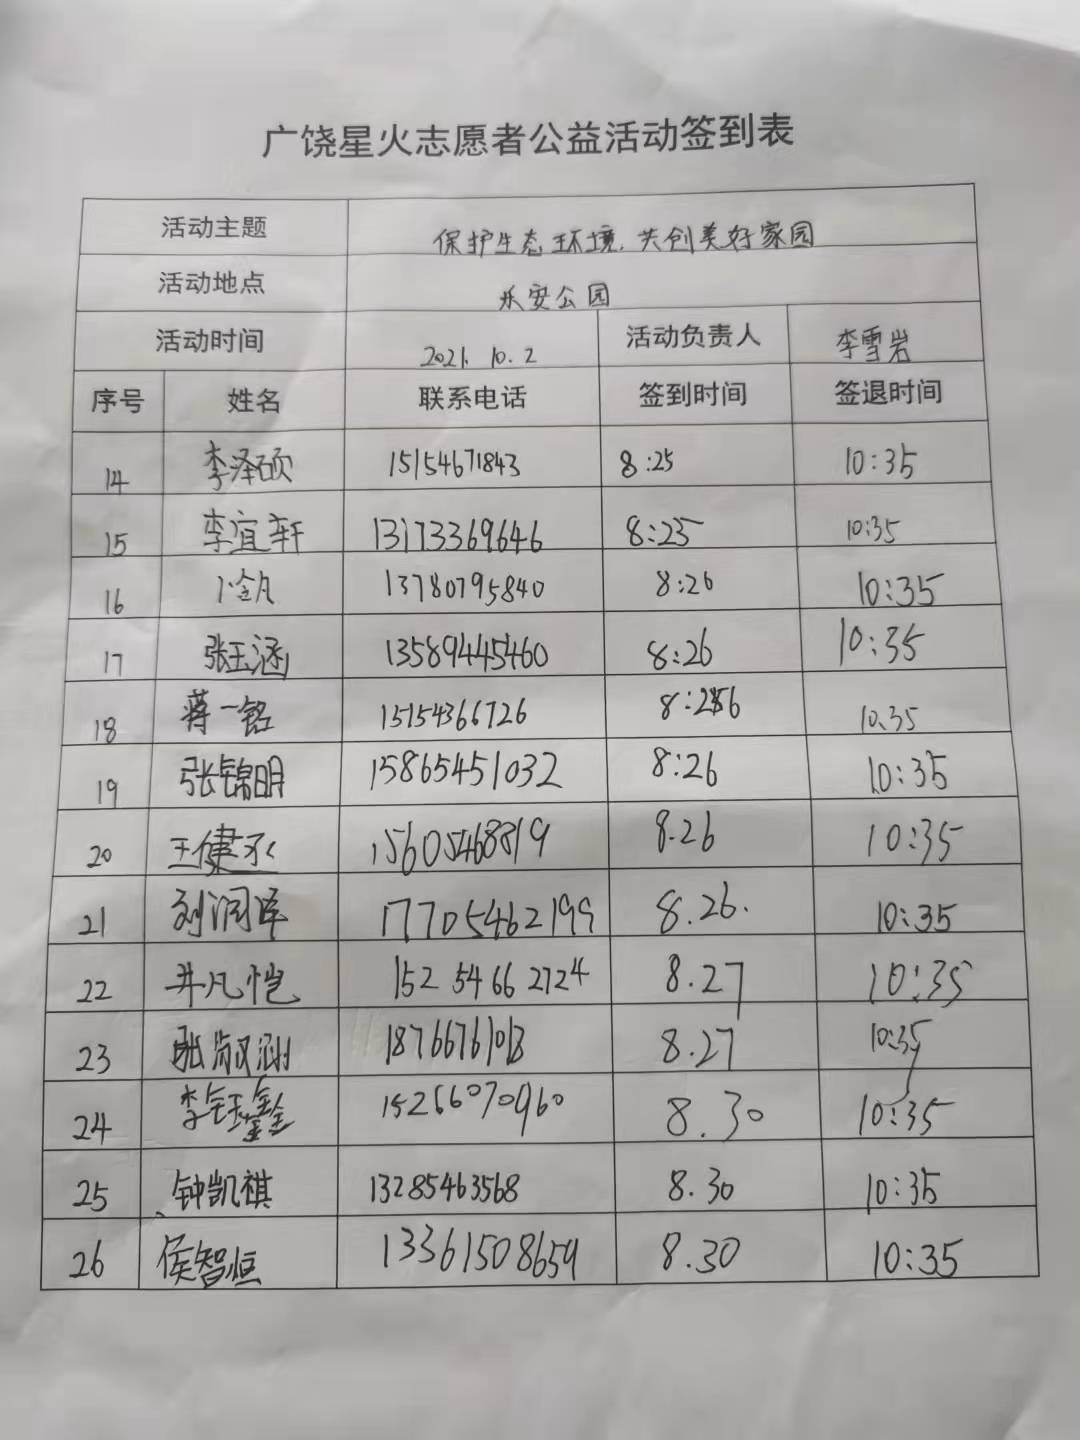 广饶星火志愿者公益活动签到表
活动主题 保护生态环境,共创美好家园
活动地点 乐安公园
活动时间 2021.10.2 活动负责人 李雪岩
序号 姓名 联系电话 签到时间 签退时间
14 李泽硕 15154671843 8:25 10:35
15 李宜轩 13173369646 8:25 10:35
16 13780795840 8:26 10:35
17 张玉涵 13589445460 8:26 10:35
18 蒋一铭 15154366726 8:26 10:35
19 张锦明 15865451032 8:26 10:35
20 王健丞 15605468819 8.26 10:35
21 刘润泽 17705462199 8.26. 10:35
22 井凡恺 152 5466 2724 8.27 10:35
23 张淑涵 8.27 10:35
24 李钰鑫 15266070960 8.30 10:35
25 钟凯祺 13285463568 8.30 10:35
26 侯智恒 13361508659 8.30 10:35